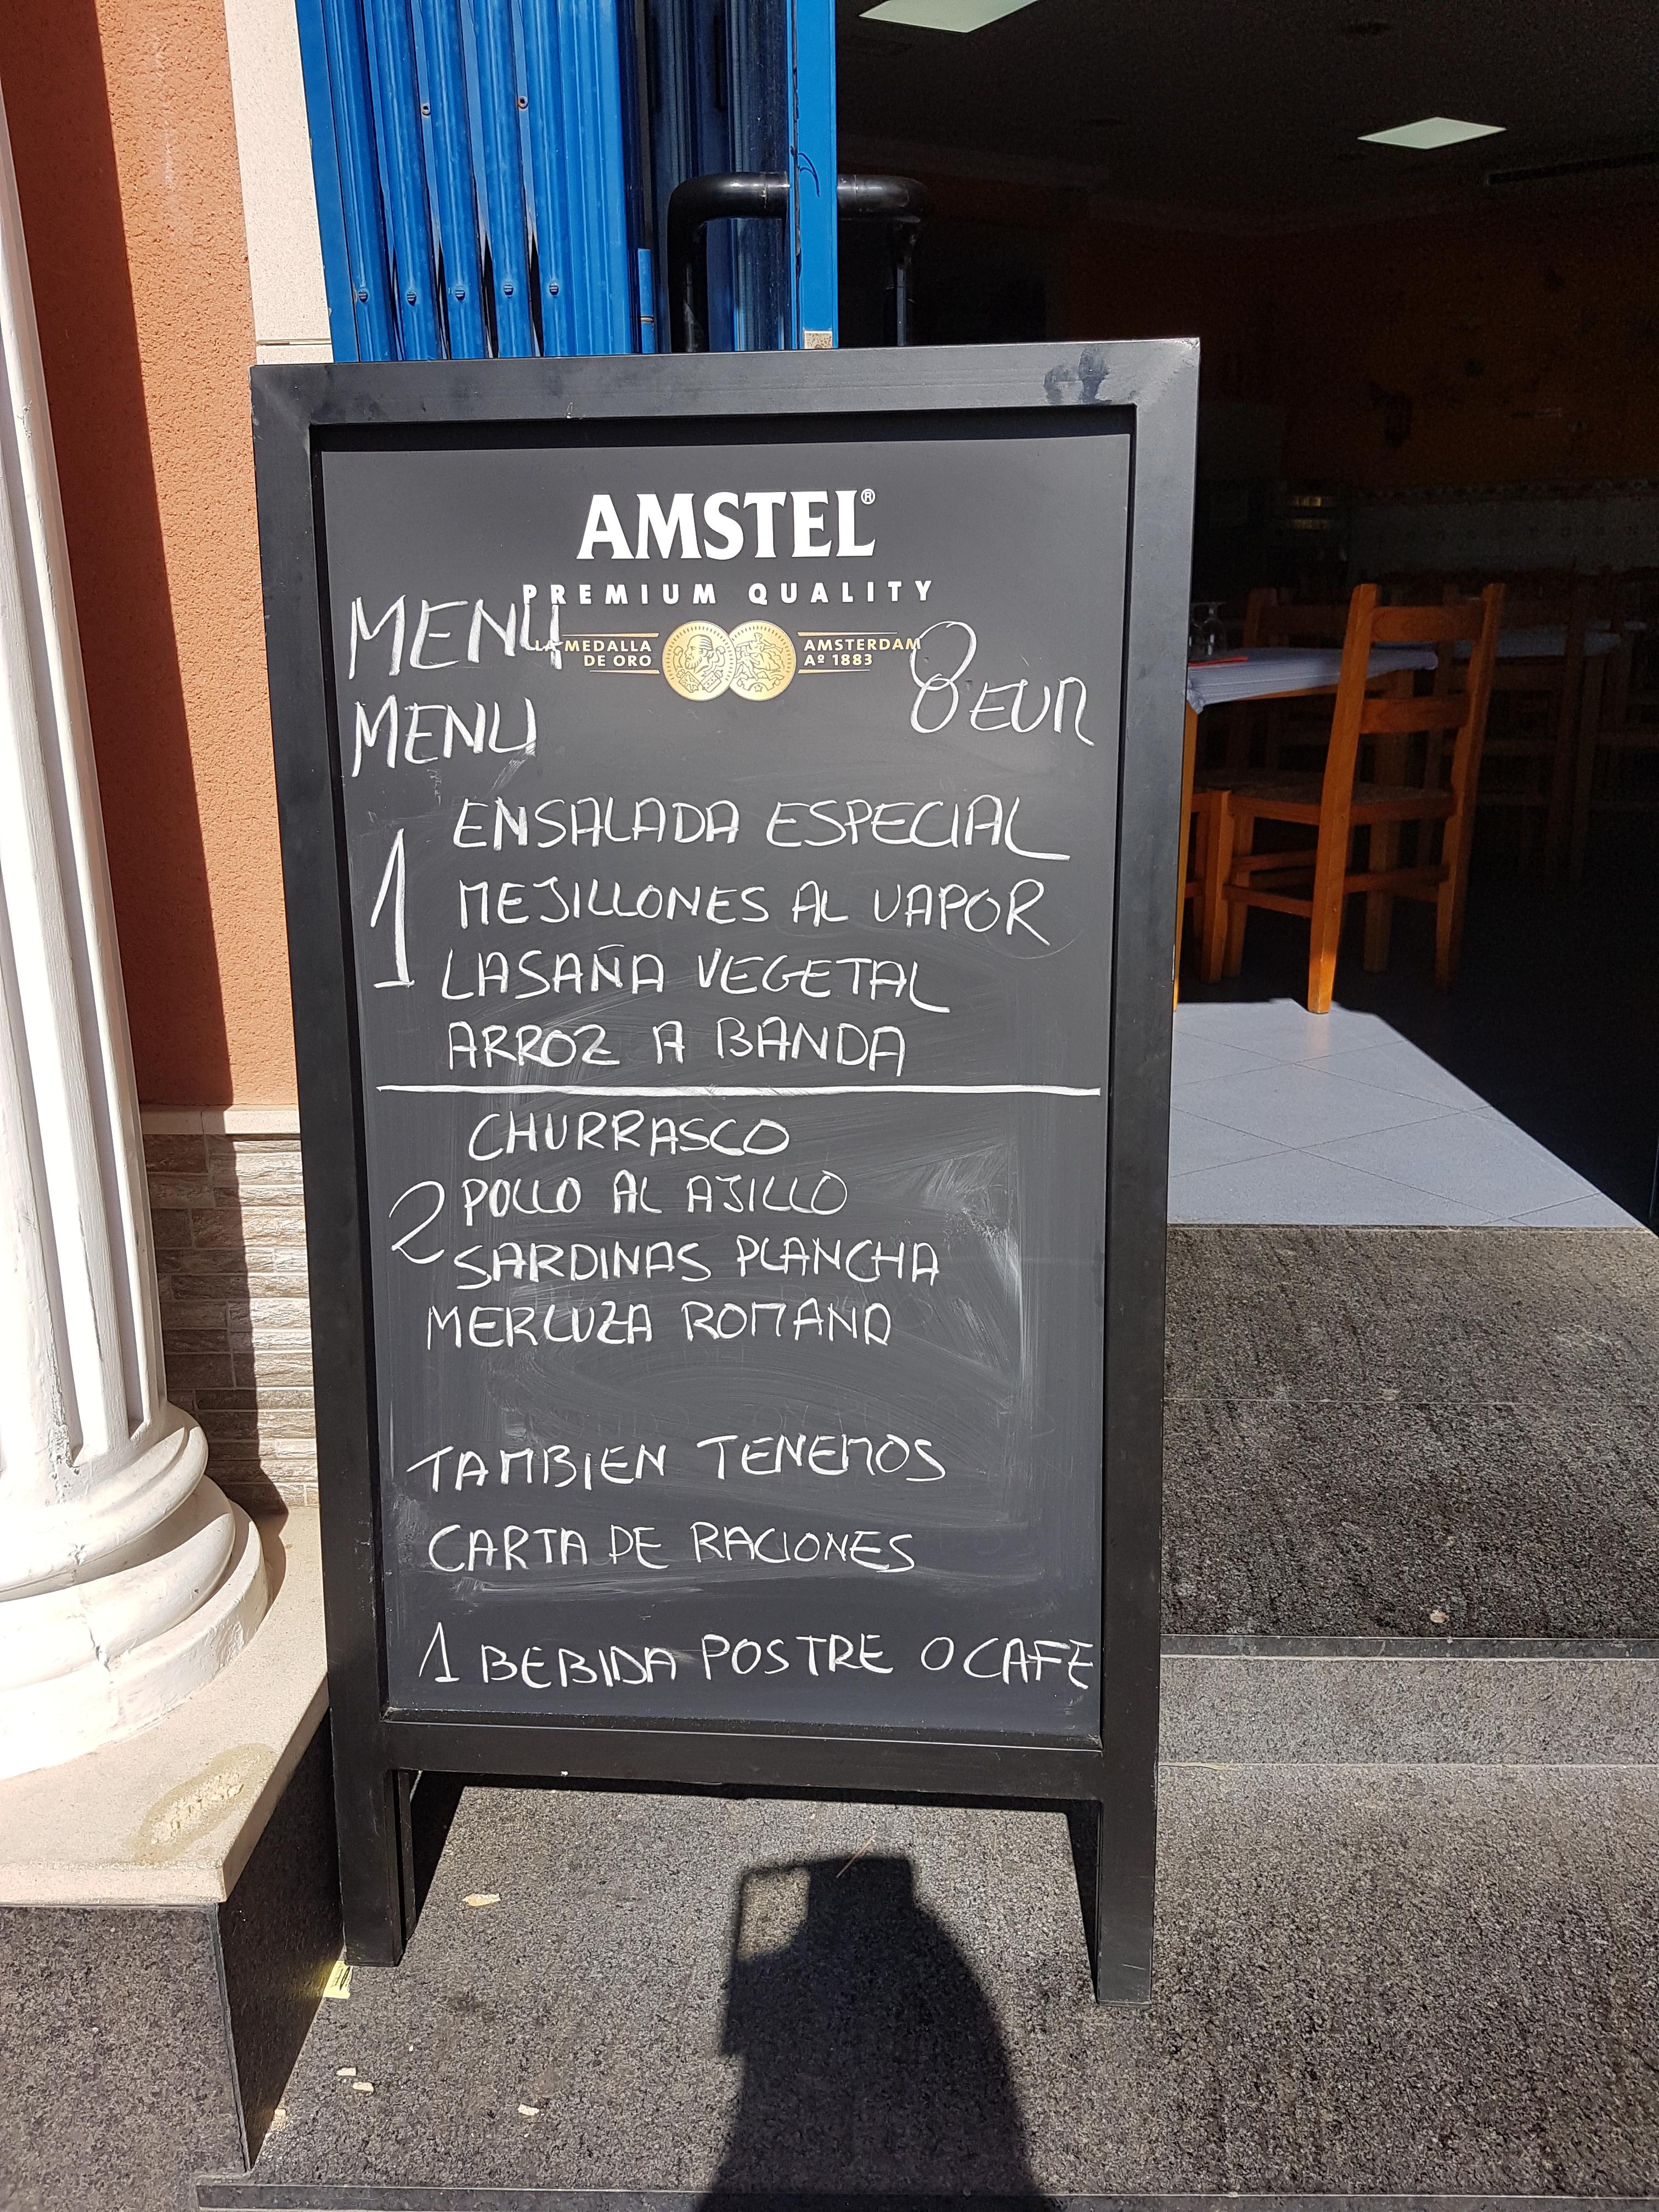 AMSTEL®
PREMIUM QUALITY
MENU
LA MEDALLA DE ORO
AMSTERDAM Aº 1883
MENU 8 EUR
1
ENSALADA ESPECIAL
MEJILLONES AL VAPOR
LASAÑA VEGETAL
ARROZ A BANDA
2
CHURRASCO
POLLO AL AJILLO
SARDINAS PLANCHA
MERLUZA ROMANA
TAMBIEN TENEMOS
CARTA DE RACIONES
1 BEBIDA POSTRE O CAFE